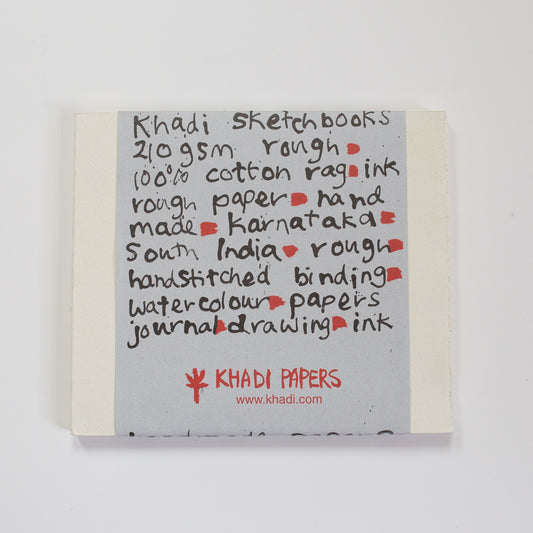 Khadi sketchbooks
210gsm rough
100% cotton rag ink
rough paper hand
made Karnataka
South India rough
handstitched binding
watercolour papers
journal drawing ink
KHADI PAPERS
www.khadi.com